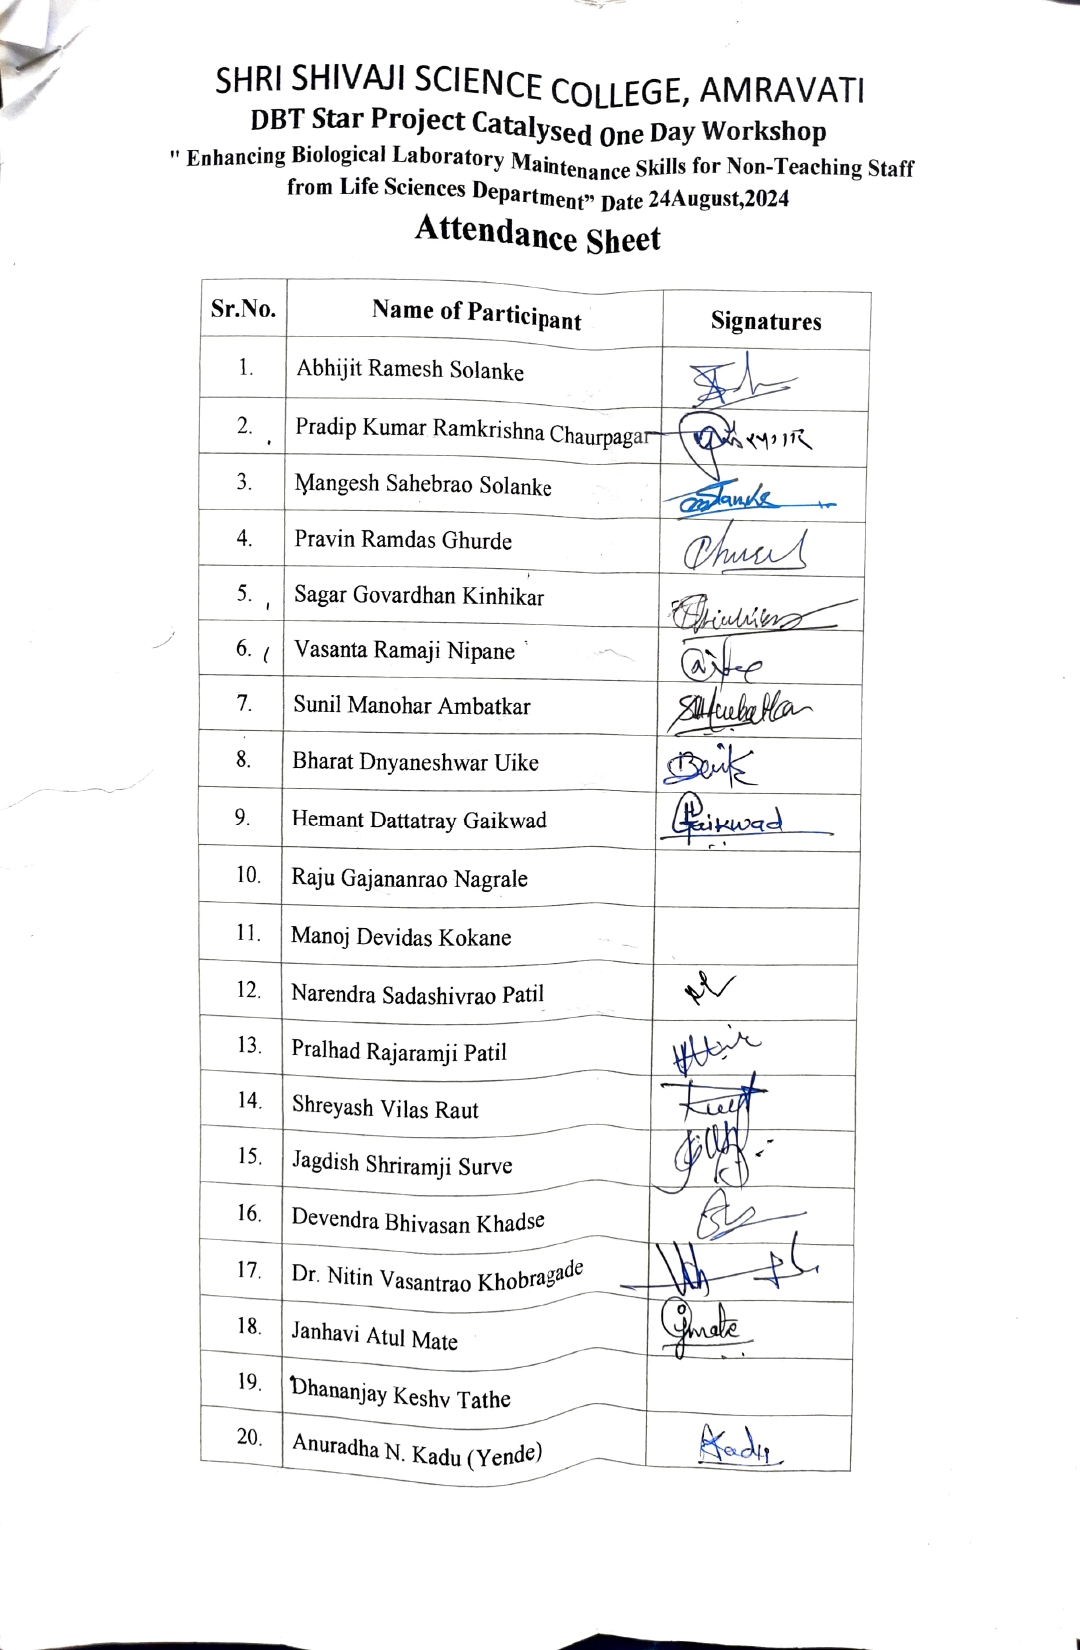 SHRI SHIVAJI SCIENCE COLLEGE, AMRAVATI
DBT Star Project Catalysed One Day Workshop
" Enhancing Biological Laboratory Maintenance Skills for Non-Teaching Staff
from Life Sciences Department” Date 24August,2024
Attendance Sheet
Sr.No. Name of Participant Signatures
1. Abhijit Ramesh Solanke
2. Pradip Kumar Ramkrishna Chaurpagar
3. Mangesh Sahebrao Solanke
4. Pravin Ramdas Ghurde
5. Sagar Govardhan Kinhikar
6. Vasanta Ramaji Nipane
7. Sunil Manohar Ambatkar
8. Bharat Dnyaneshwar Uike
9. Hemant Dattatray Gaikwad Gaikwad
10. Raju Gajananrao Nagrale
11. Manoj Devidas Kokane
12. Narendra Sadashivrao Patil
13. Pralhad Rajaramji Patil
14. Shreyash Vilas Raut
15. Jagdish Shriramji Surve
16. Devendra Bhivasan Khadse
17. Dr. Nitin Vasantrao Khobragade
18. Janhavi Atul Mate
19. Dhananjay Keshv Tathe
20. Anuradha N. Kadu (Yende)